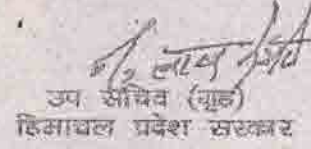 उप सचिव (गृह)
हिमाचल प्रदेश सरकार